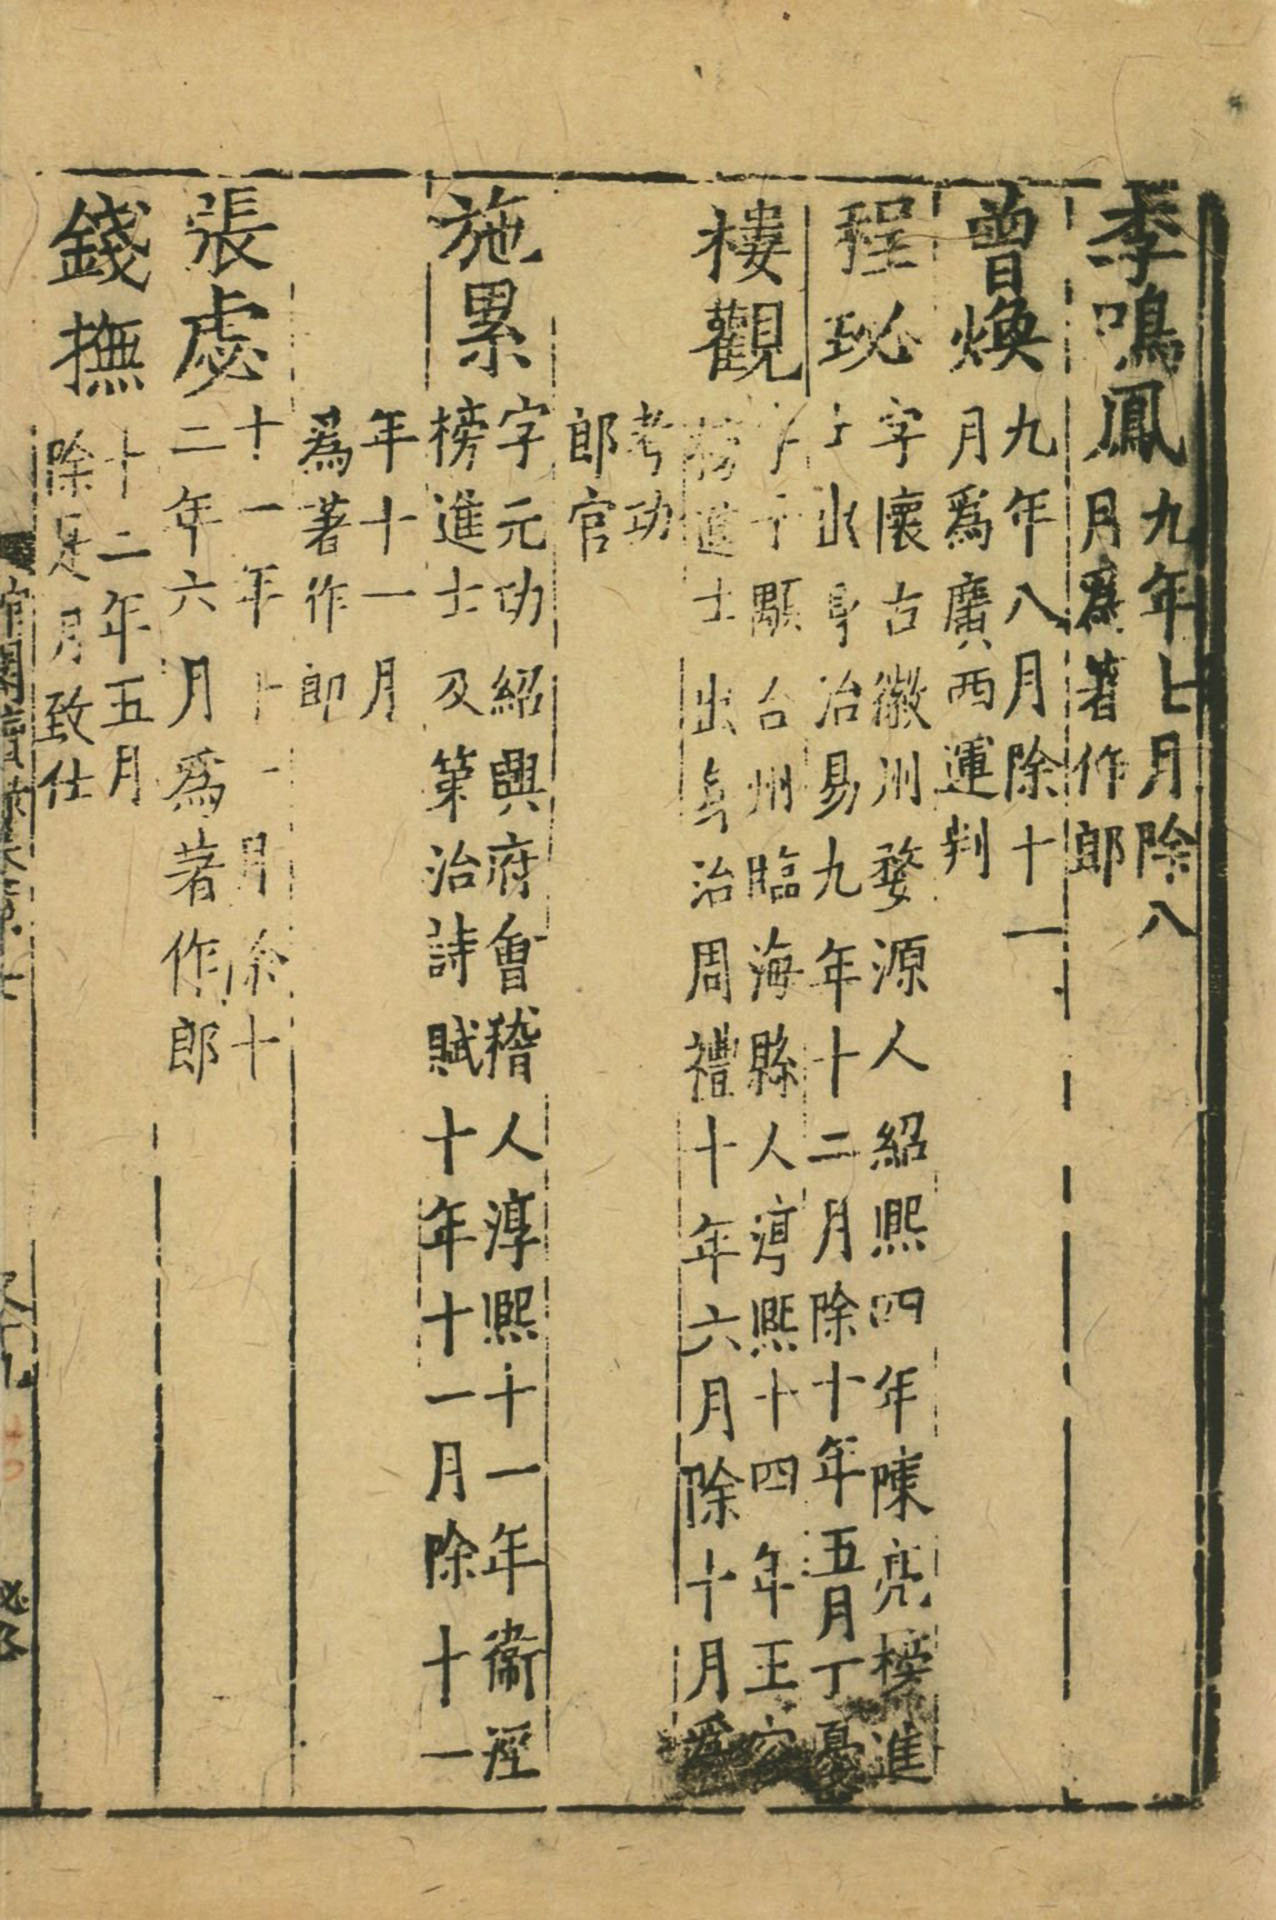 李鳴鳳九年七月除八
月爲著作郎
曾煥九年八月除十一
月爲廣西運判
程珌字懷古徽州婺源人紹熙四年陳亮榜進
士出身治易九年十二月除十年五月丁憂
樓觀子顒台州臨海縣人淳熙十四年王容
榜進士出身治周禮十年六月除十月爲
考功
郎官
施累字元功紹興府會稽人淳熙十一年衞涇
榜進士及第治詩賦十年十一月除十一
年十一月
爲著作郎
張虙十一年十一月除十
二年六月爲著作郎
錢撫十二年五月
除是月致仕
館閣續錄卷第